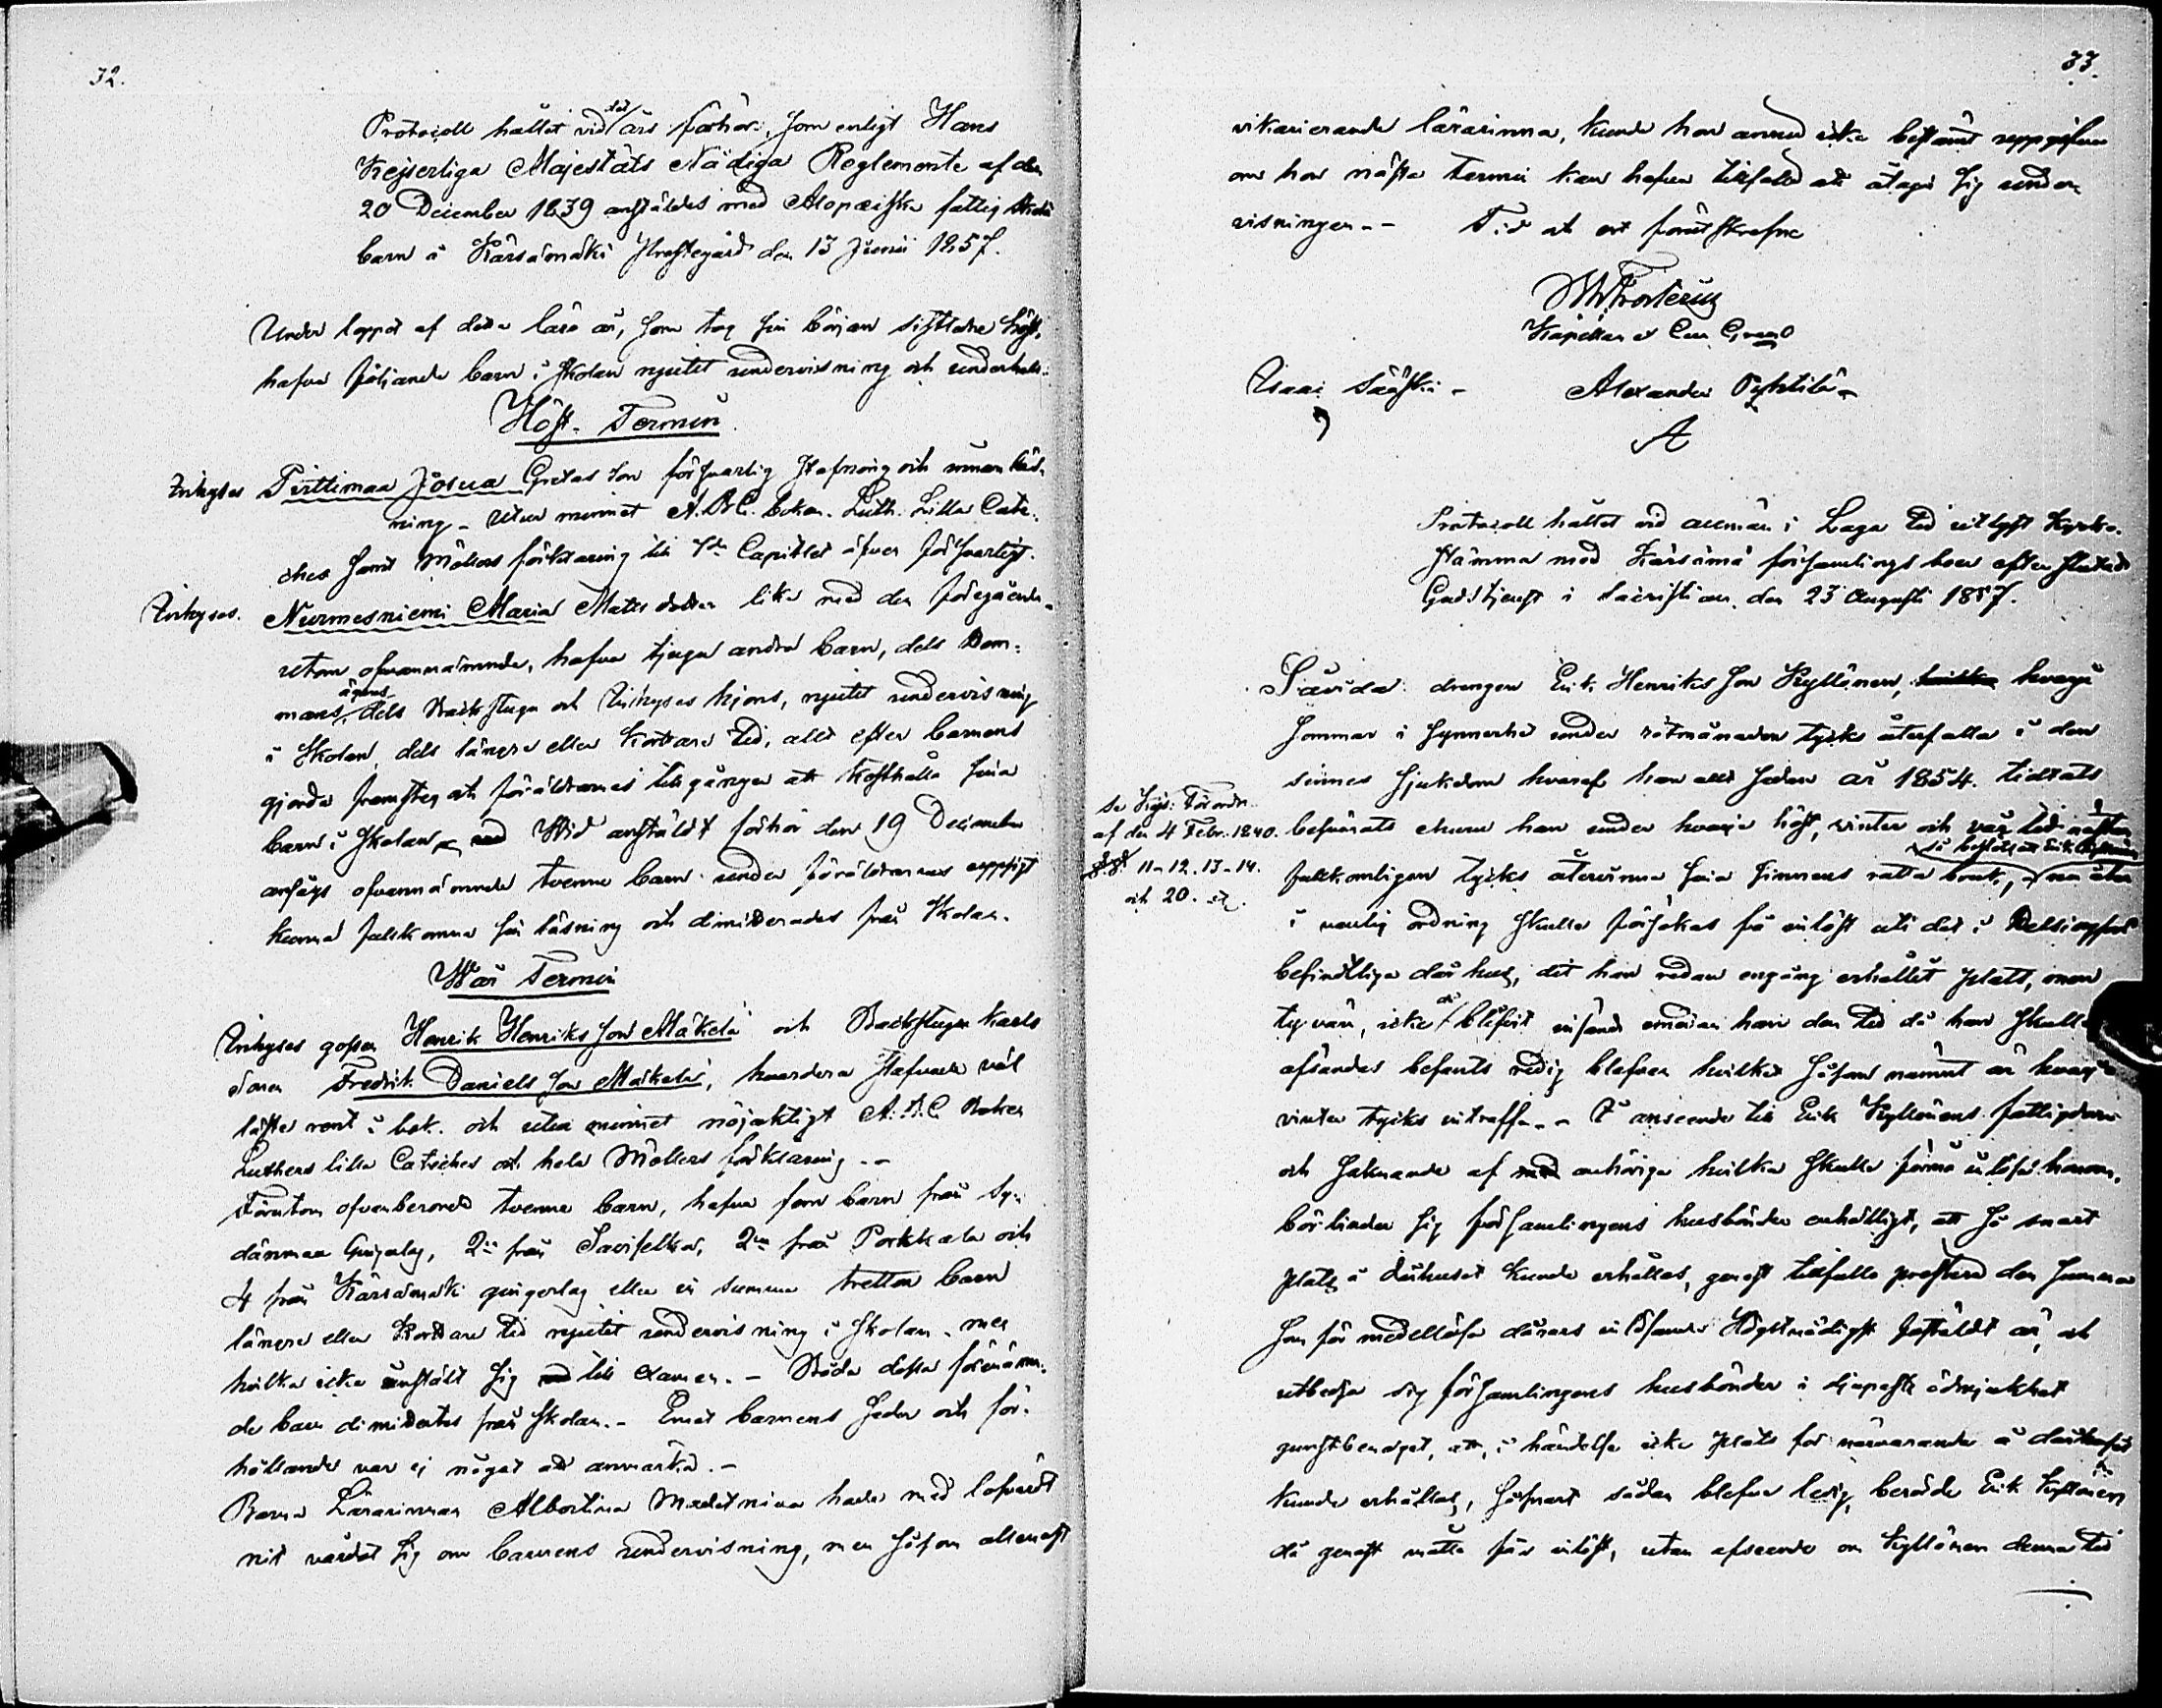 32.
Protocoll hållet vid det års förhör, som enligt Hans
Kejserliga Majestäts Nådiga Reglemente af den
20 December 1839 anstäldes med Alopæiska fattig Skole
barn å Kärsämäki Prestegård den 13 Junii 1857.
Under loppet af detta läro år, som tog sin början sistledne höst,
hafva följande barn i skolan njutit undervisning och underhåll.
Höst-Termin
Inhyses Pirttimaa Josua Gretas son försvarlig stafning och innan läs-
ning - utur minnet A.B.C. boken. Luth. Lilla Cate-
ches samt Möllers förklaring till Capitlet äfven försvarligt.
Inhyses. Nurmesniemi Maria Mats dotter lika med den föregående.
utom ofvannämnde, hafva tjugu andra barn, dels Bon-
mans, ägares dels Backstugu och Inhyses hjons, njutit undervisning
i Skolan, dels längre eller kortare tid, allt efter barnens
gjorda framsteg och föräldrarnes tillgångar att kosthålla sina
barn i Skolan, Wid anstäldt förhör den 19 December
ansågs ofvannämnde tvenne barn under föräldrarnes uppsigt
kunna fullkomna sin läsning och dimitterades från Skolan.
Wår Termin
Inhyses gossen Henrik Henriks son Mäkelä och Backstugu karls
sonen Fredrik Daniels son Mäkelä, hvardera stafvade väl
läste rent i bok. och utur minnet nöjaktigt A.B.C Boken
Luthers lilla Catechés och hela Möllers förklaring.-
Förutom ofvanberörde tvenne barn, hafva fem barn från Sy-
dänmaa Gingerlag, 2ne från Saviselkä, 2ne från Porkkala och
4 från Kärsämäki gingerlag eller in summa tretton barn
längre eller kortare tid njutit undervisning i Skolan, men
hvilka icke instält sig till examen. - Båda dessa förenämn-
de barn dimitterades från Skolan. - Emot barnens seder och för-
hållande var ej något att anmärka. -
Barna Lärarinnan Albertina hade med lofvärdt
nit vårdat sig om barnens undervisning, men såsom allenast
33.
vikarierande lärarinna, kunde hon annu icke bestämt uppgifva
om hon nästa termin kan hafva tillfälle att åtaga sig under-
visningen.-- Tid och ort förutskrefne
Kapellan
Isaac Sääski - Alexander Pyhtilä -
A
Protocoll hållet vid allmän i Laga tid utlyst kyrko-
stämma med Kärsämä församlings boer efter slutad
Gudstjenst i Sacristian, den 23 Augusti 1857.
Såvida drengen Erik Henriks son Kyllönen, hvarje
sommar i synnerhet under rötmånaden tycks återfalla i den
sinnes sjukdom hvaraf han allt sedan år 1854. tidtals
se Kejs: Förordn.
af den 4 Febr. 1840.
§.§. 11-12.13-14.
och 20.
besvärats ehuru han under hvarje höst, vinter och vår tid nästan
fullkomligen tycks återvinna sina sinnens rätta bruk,
i vanlig ordning skulle försökas få inlöst uti det i Helsingfors
befindtliga dårhus, dit han redan engång erhållit plats, men
tyvärr, icke då blifvit insänd emedan han den tid då han skulle
afsändas befants redig blefven hvilket såsom nämnt är hvarje
vinter tycks inträffa.-- I anseende till Erik Kyllönens fattigdom
och saknande af anhöriga hvilka skulle förmå inlösa honom,
församlingens husbönder enhälligt, att så snart
plats å dårhuset kunde erhållas, genast den summa
som för medellösa dårars inlösande Högstnådigst faststäldt är, och
utbedja sig församlingens husbönder i djupaste ödmjukhet
gunstbenäget, att, i händelse icke plats för närvarande å dårhuset
kunde erhållas, såsnart sådan blefve ledig, berörde Erik Kyllönen
då genast måtte få inlöst, utan afseende om Kyllönen denna tid